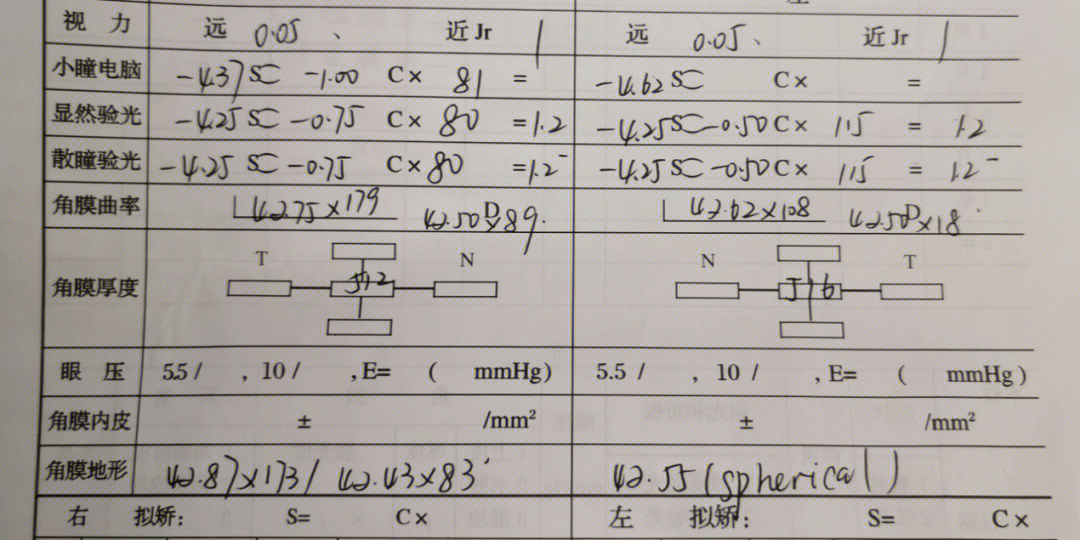 视 力 远 0.05 、 近 Jr 1 远 0.05 、 近 Jr 1
小瞳电脑 -4.37 S -1.00 C× 81 = -4.62 S C× =
显然验光 -4.25 S -0.75 C× 80 =1.2 -4.25 S -0.50 C× 115 = 1.2
散瞳验光 -4.25 S -0.75 C× 80 =1.2⁻ -4.25 S -0.50 C× 115 = 1.2⁻
角膜曲率 42.75×179 42.50D×89 42.62×108 42.50D×18
T N N T
角膜厚度 512 516
眼 压 5.5 / , 10 / , E= ( mmHg) 5.5 / , 10 / , E= ( mmHg)
角膜内皮 ± /mm² ± /mm²
角膜地形 42.87×173 / 42.43×83 42.55 (spherical)
右 拟矫: S= C× 左 拟矫: S= C×